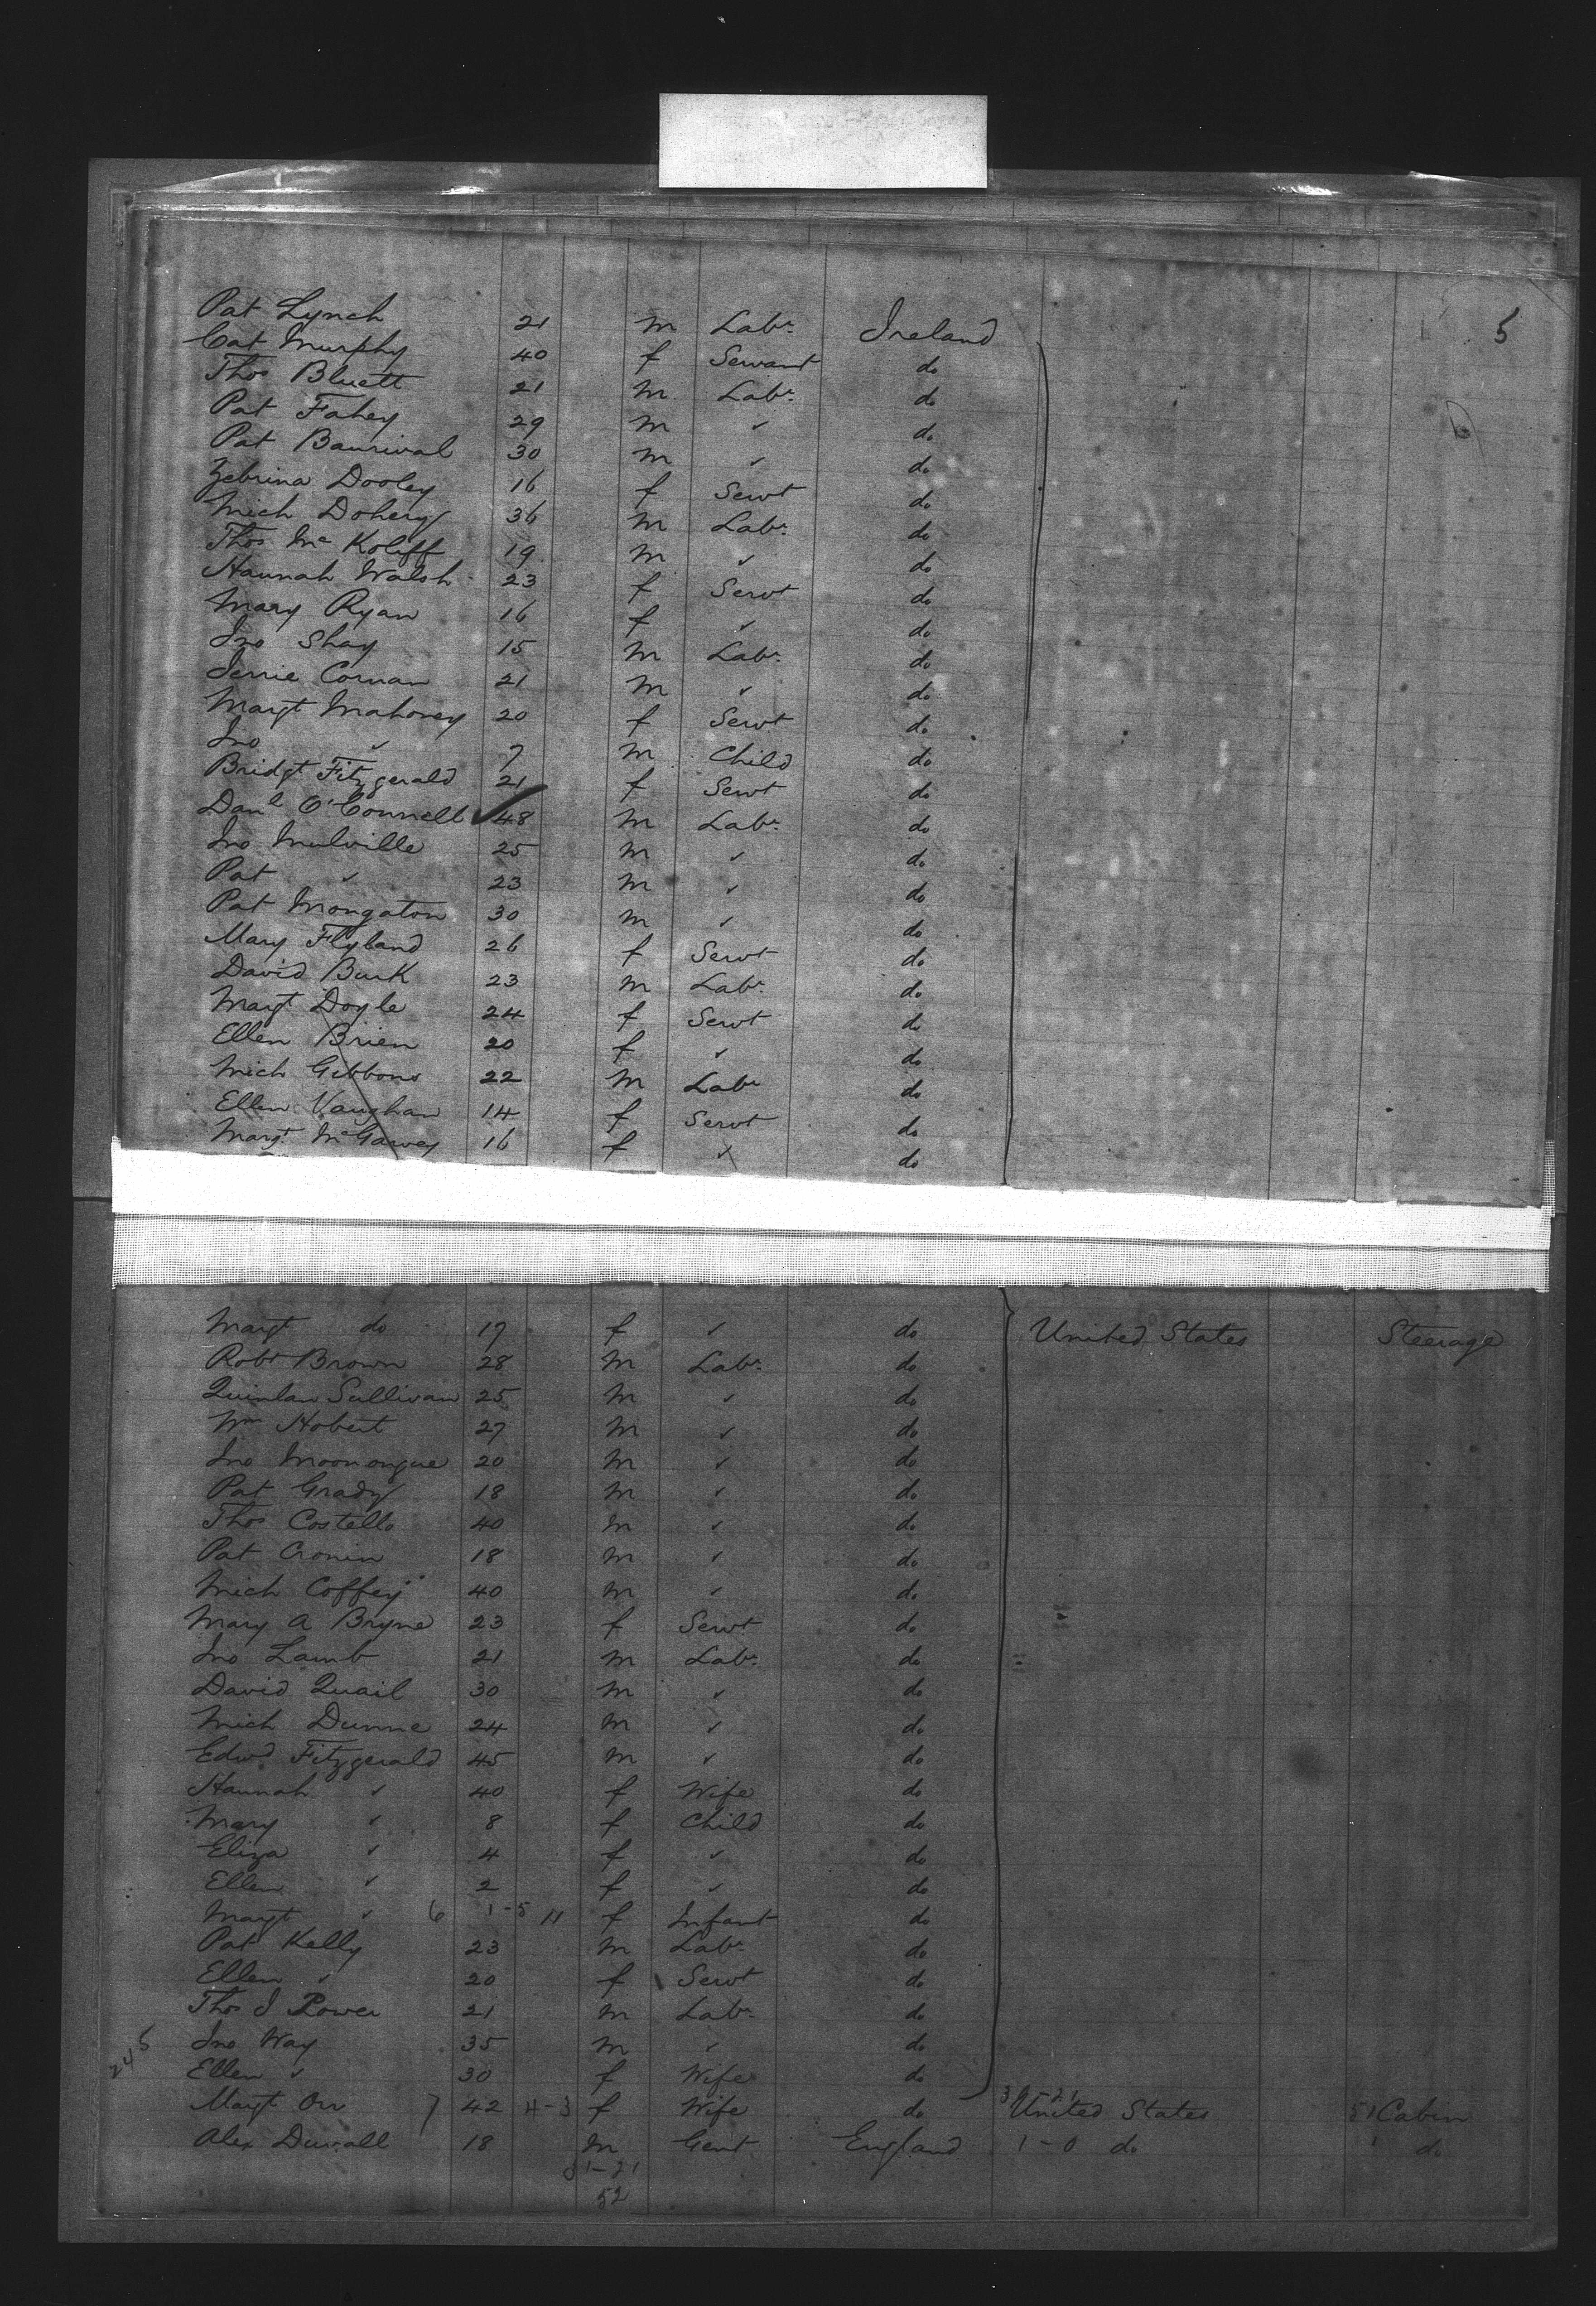 5
Pat Lynch 21 m Labr. Ireland
Cat Murphy 40 f Servant do
Thos Bluett 21 m Labr. do
Pat Fahey 29 m ✓ do
Pat Baurival 30 m ✓ do
Zebrina Dooley 16 f Servt do
Mich Dohery 36 m Labr. do
Thos Mc Koliff 19 m ✓ do
Hannah Walsh 23 f Servt do
Mary Ryan 16 f ✓ do
Jno Shay 15 m Labr. do
Jerrie Cornan 21 m ✓ do
Margt Mahoney 20 f Servt do
Jno ✓ 7 m Child do
Bridgt Fitzgerald 21 f Servt do
Danl O'Connell ✓ 48 m Labr. do
Jno Mulville 25 m ✓ do
Pat ✓ 23 m ✓ do
Pat Mongaton 30 m ✓ do
Mary Flyband 26 f Servt do
David Burk 23 m Labr. do
Margt Doyle 24 f Servt do
Ellen Brien 20 f ✓ do
Mich Gibbons 22 m Labr do
Ellen Vaughan 14 f Servt do
Margt McGarvey 16 f ✓ do
Margt do 17 f ✓ do United States Steerage
Robt Brown 28 m Labr. do
Quinlan Sullivan 25 m ✓ do
Wm Hobert 27 m ✓ do
Jno Moonongue 20 m ✓ do
Pat Grady 18 m ✓ do
Thos Costello 40 m ✓ do
Pat Cronin 18 m ✓ do
Mich Coffey 40 m ✓ do
Mary A Bryne 23 f Servt do
Jno Lamb 21 m Labr. do
David Quail 30 m ✓ do
Mich Dunne 24 m ✓ do
Edwd Fitzgerald 45 m ✓ do
Hannah ✓ 40 f Wife do
Mary ✓ 8 f Child do
Eliza ✓ 4 f ✓ do
Ellen ✓ 2 f ✓ do
Margt ✓ 6 1-5 11 f Infant do
Pat Kelly 23 m Labr. do
Ellen ✓ 20 f Servt do
Thos J Power 21 m Labr. do
245 Jno Way 35 m ✓ do
Ellen ✓ 30 f Wife do
Margt Orr 7 42 4-3 f Wife do United States Cabin
Alex Duvall 18 m Gent England 1-0 do 1 do
31-21
52